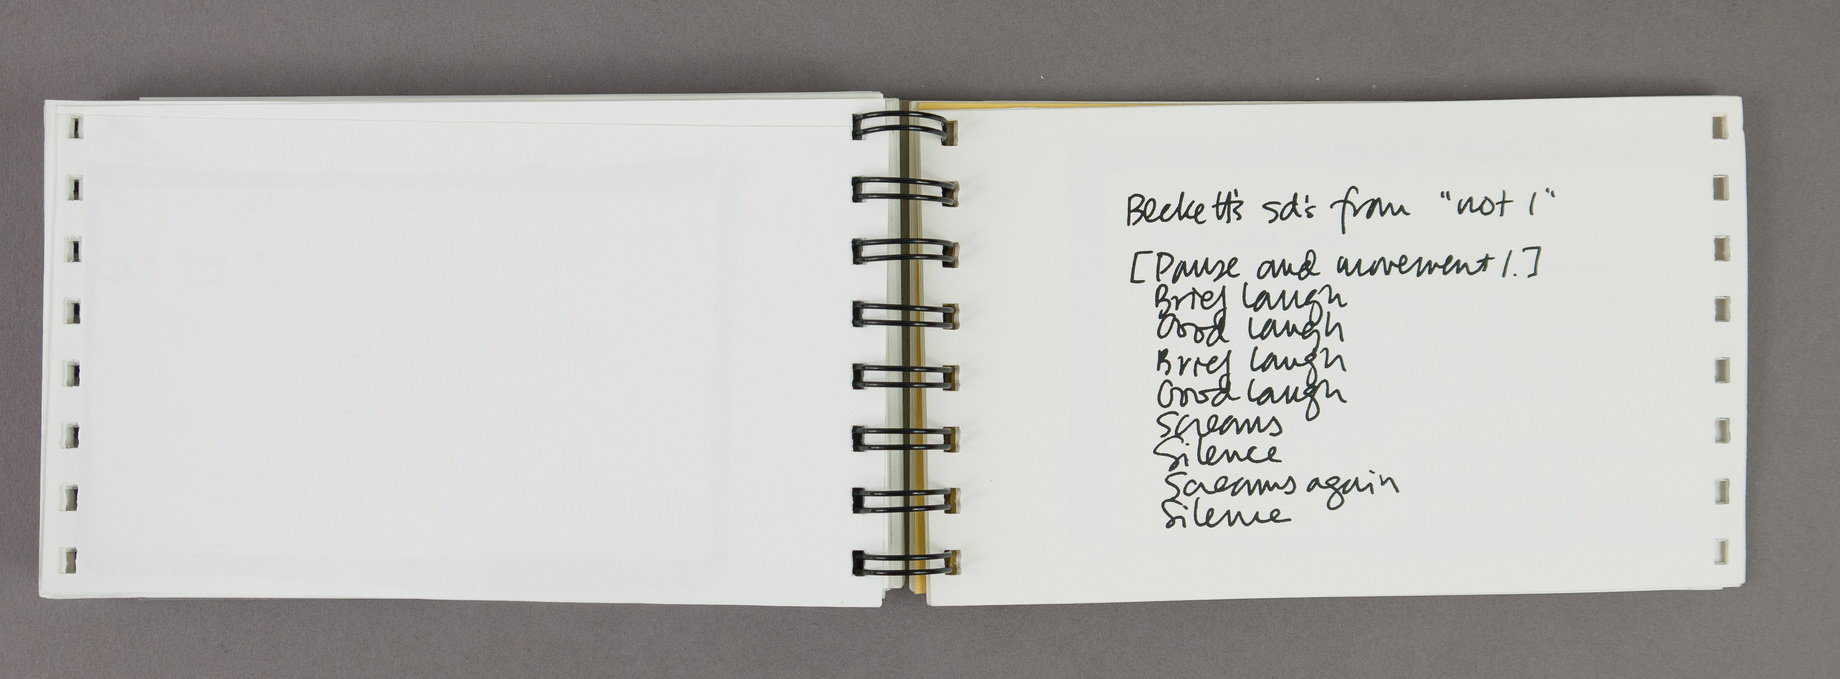 Beckett's sd's from "not I"
[Pause and movement 1.]
Brief laugh
Good laugh
Brief laugh
Good laugh
Screams
Silence
Screams again
Silence